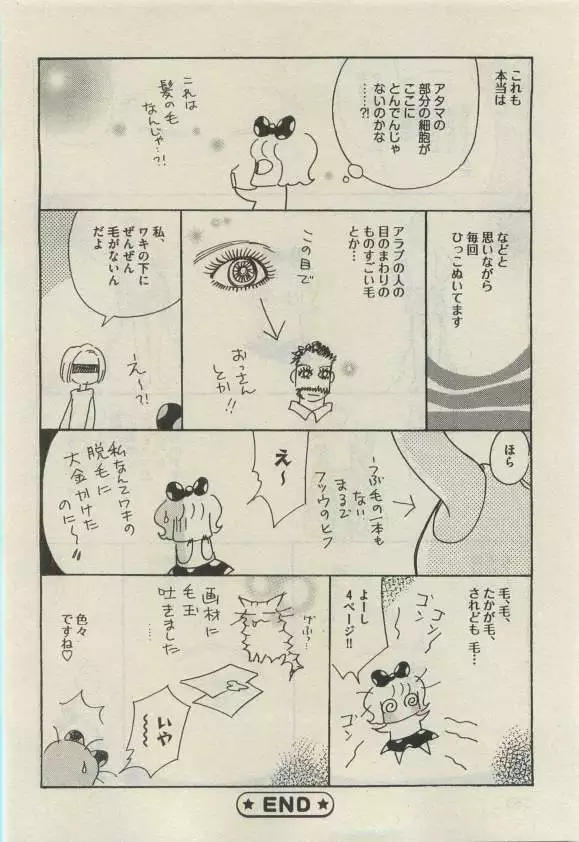 これも
本当は
アタマの
部分の細胞が
ここに
とんでんじゃ
ないのかな
……?!
これは
髪の毛
なんじゃ…?!
などと
思いながら
毎回
ひっこぬいてます
アラブの人の
目のまわりの
ものすごい毛
とか…
この目で
おっさん
とか!!
私、
ワキの下に
ぜんぜん
毛がないん
だよ
えー〜?!
ほら
つぶ毛の一本も
ない
まるで
フツウのヒフ
え〜
私なんてワキの
脱毛に
大金かけた
のに〜
毛、毛、
たかが毛、
されども 毛…
よーし
4ページ!!
ゴン
ゴン
ゴン
画材に
毛玉
吐きました
げふっ…
いや〜
色々
ですね♡
★ END ★